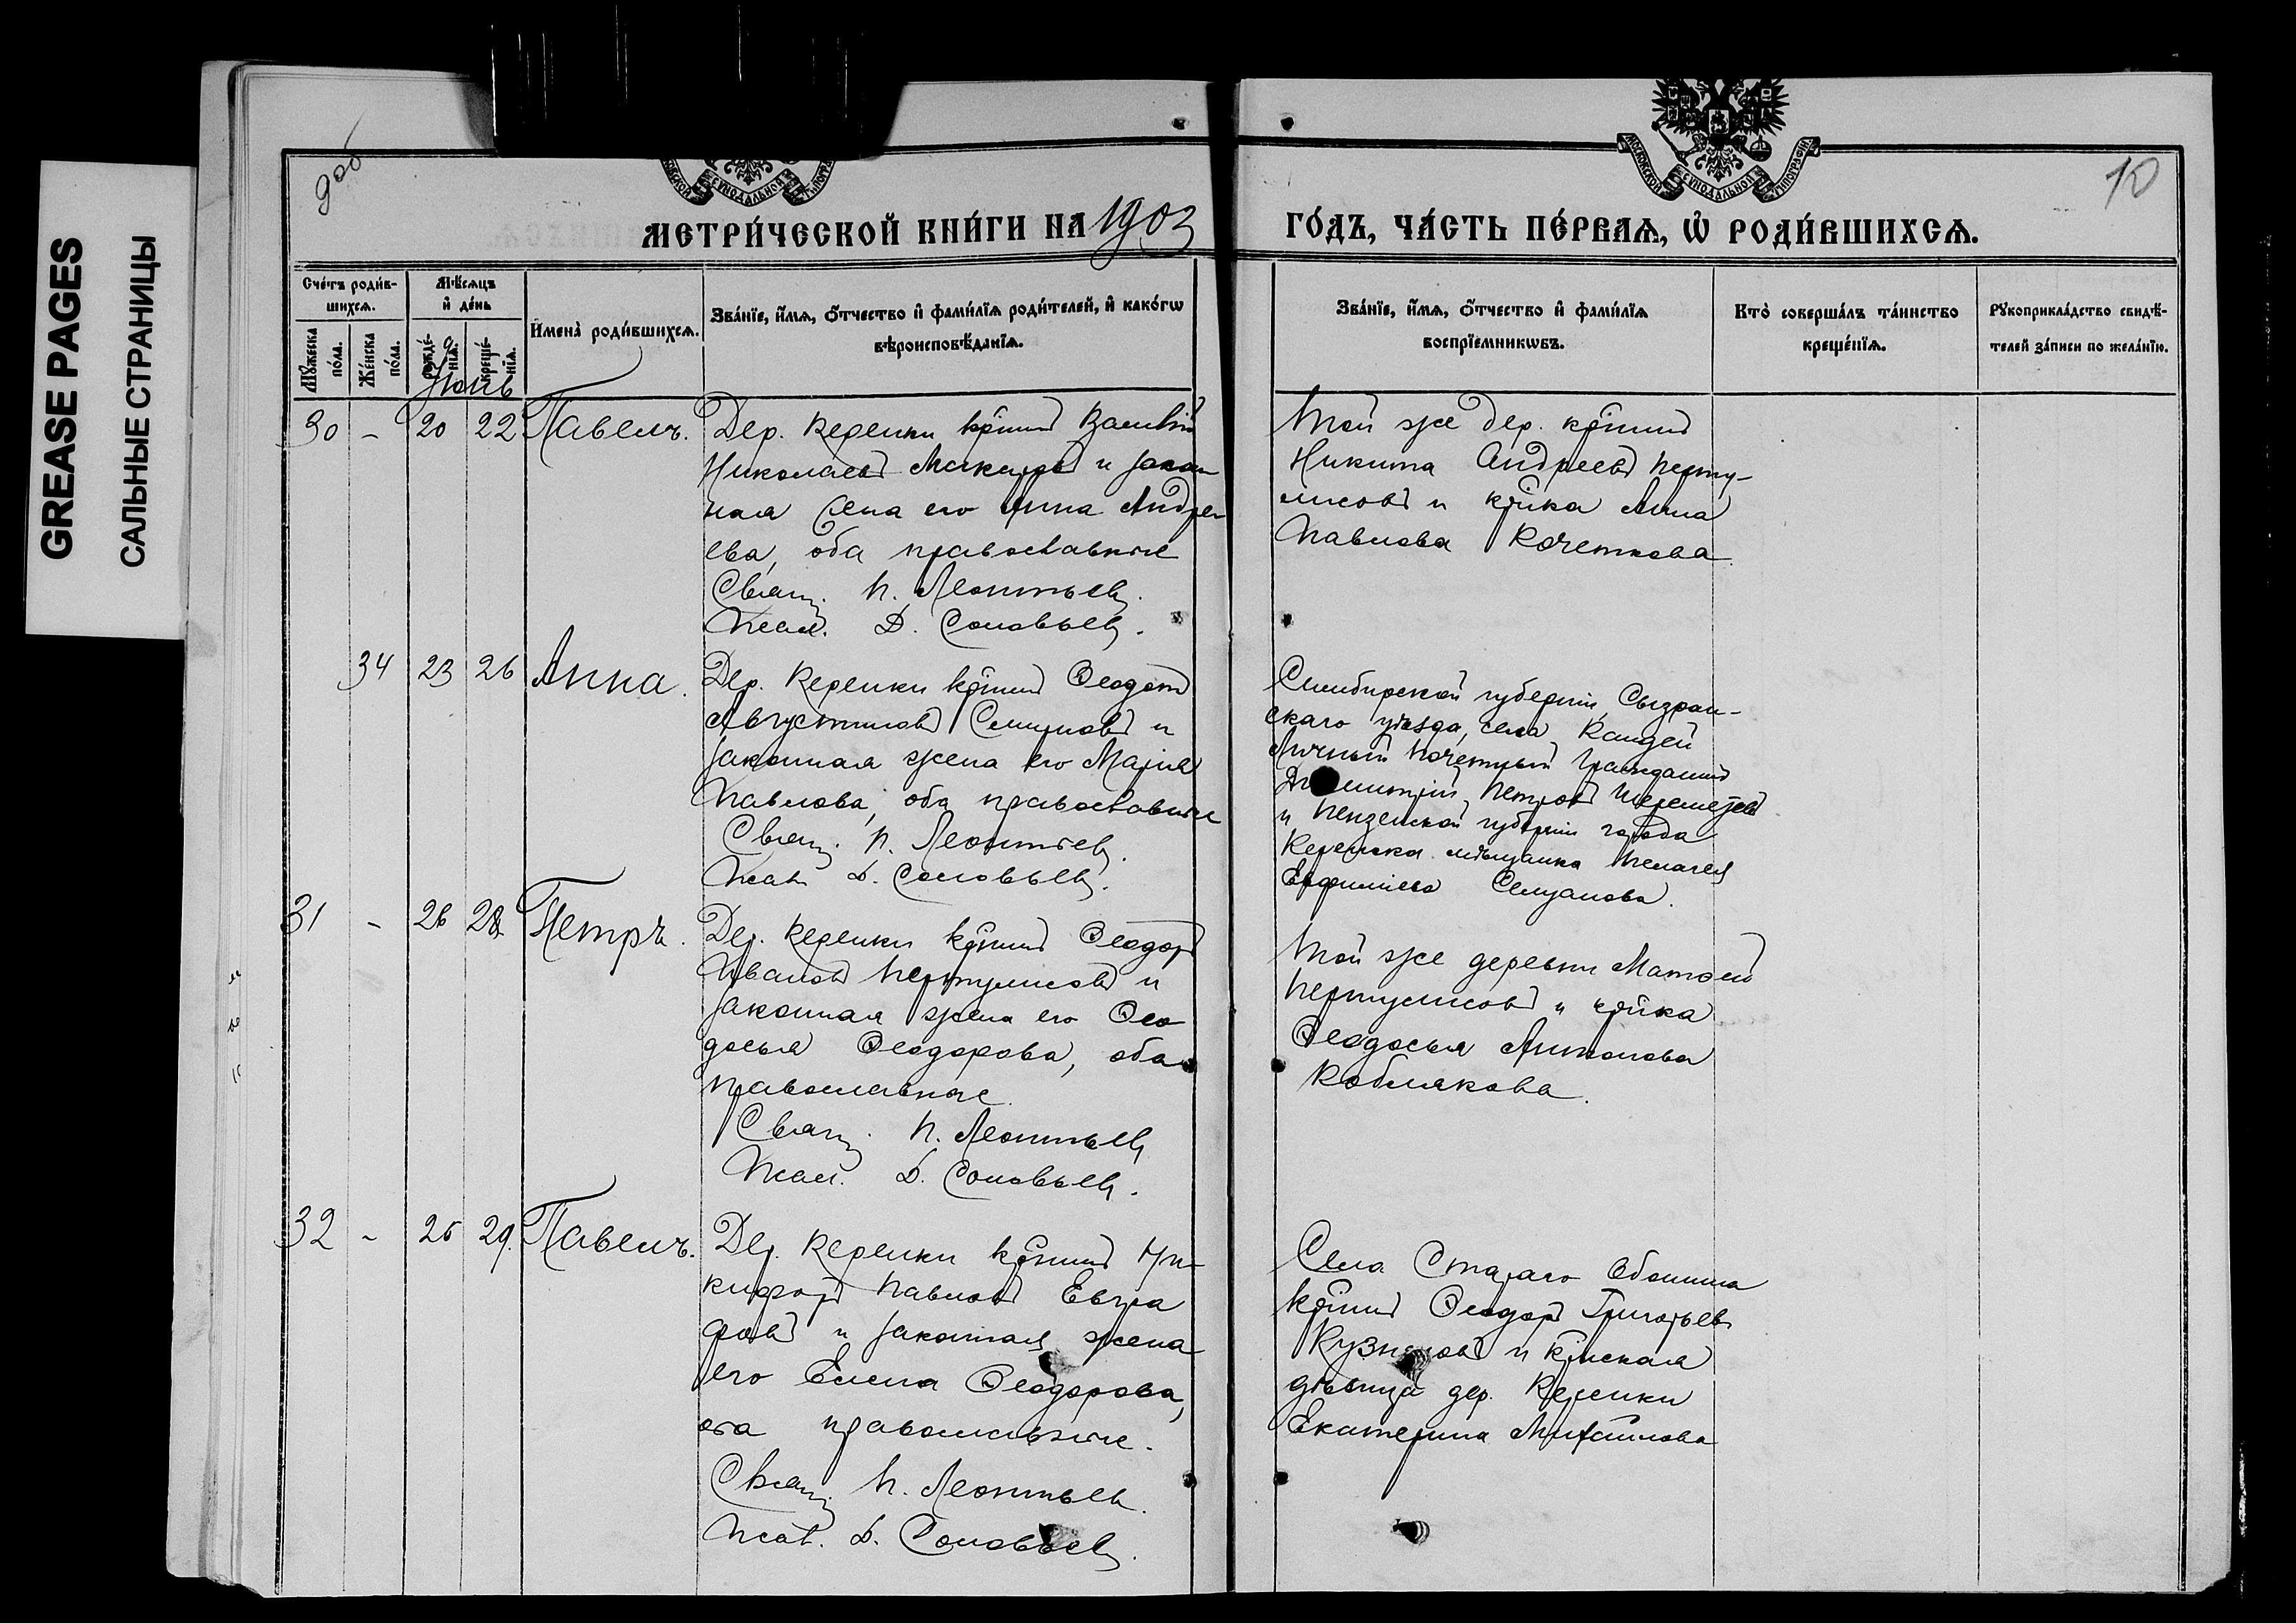 GREASE PAGES
САЛЬНЫЕ СТРАНИЦЫ
МЕТРИ́ЧЕСКОЙ КНИ́ГИ НА 1903
ГО́ДЪ, ЧА́СТЬ ПЕ́РВАЯ, Ѡ҆ РОДИ́ВШИХСЯ.
10
Сче́тъ роди́в-
шихся.
Мѣ́сяцъ
и҆ де́нь
И҆мена̀ роди́вшихся.
Зва́нїе, и҆́мя, ѻ҆́тчество и҆ фами́лїя роди́телей, и҆ како́гѡ
вѣроисповѣ́данїя.
Зва́нїе, и҆́мя, ѻ҆́тчество и҆ фами́лїя
воспрїе́мникѡвъ.
Кто̀ соверша́лъ та́инство
креще́нїя.
Рꙋкоприкла́дство свидѣ́-
телей за́писи по жела́нїю.
Мꙋ́жеска
по́ла.
Же́нска
по́ла.
рожде́-
нїя.
креще́-
нїя.
Іюнь
30 - 20 22 Павелъ.
Дер. Керенки кр̃нинъ Василій
Николаевъ и закон
ная жена его Анна Андре
ева, оба православные
Свящ. П. Леонтьевъ.
Псал. Д. Соловьевъ.
Той же дер. кр̃нинъ
Никита Андреевъ Перту-
лисовъ и кр̃нка Анна
Павлова Кочеткова.
34 23 26 Анна.
Дер. Керенки кр̃нинъ Ѳеодотъ
Августиновъ и
законная жена его Марія
Павлова, оба православные
Свящ. П. Леонтьевъ.
Псал. Д. Соловьевъ.
Симбирской губерніи, Сызран-
скаго уѣзда, села
Личный Почетный Гражданинъ
Димитрій Петровъ
и Пензенской губерніи города
Керенска мѣщанка Пелагея
Евфиміева
31 - 26 28 Петръ.
Дер. Керенки кр̃нинъ Ѳеодоръ
Ивановъ Пертулисовъ и
законная жена его Ѳео
досья Ѳеодорова, оба
православные.
Свящ. П. Леонтьевъ
Псал. Д. Соловьевъ.
Той же деревни Матѳей
Пертулисовъ и кр̃нка
Ѳеодосья Антонова
Коблякова.
32 - 26 29. Павелъ.
Дер. Керенки кр̃нинъ Ни-
кифоръ Павловъ Евгра
фовъ и законная жена
его Елена Ѳеодорова,
оба православные.
Свящ. П. Леонтьевъ.
Псал. Д. Соловьевъ.
Села Стараго
кр̃нинъ Ѳеодоръ Григорьевъ
Кузнецовъ и кр̃нская
дѣвица дер. Керенки
Екатерина Михайлова